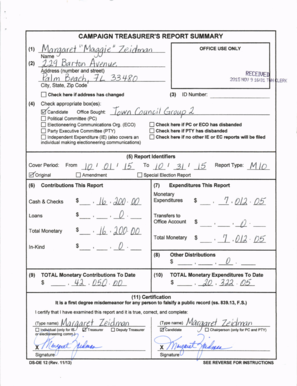 CAMPAIGN TREASURER'S REPORT SUMMARY
(1) Margaret "Maggie" Zeidman
Name
OFFICE USE ONLY
(2) 229 Barton Avenue
Address (number and street)
Palm Beach, FL 33480
City, State, Zip Code
RECEIVED
Check here if address has changed
(3) ID Number:
(4) Check appropriate box(es):
Candidate Office Sought: Town Council Group 2
Political Committee (PC)
Electioneering Communications Org. (ECO)
Check here if PC or ECO has disbanded
Party Executive Committee (PTY)
Check here if PTY has disbanded
Independent Expenditure (IE) (also covers an individual making electioneering communications)
Check here if no other IE or EC reports will be filed
(5) Report Identifiers
Cover Period: From 10 / 01 / 15 To 10 / 31 / 15 Report Type: M10
Original Amendment Special Election Report
(6) Contributions This Report
(7) Expenditures This Report
Cash & Checks $ 16,200.00
Monetary Expenditures $ 7,012.05
Loans $ 0
Transfers to Office Account $ 0
Total Monetary $ 16,200.00
Total Monetary $ 7,012.05
In-Kind $ 0
(8) Other Distributions
$ 0
(9) TOTAL Monetary Contributions To Date
$ 42,050.00
(10) TOTAL Monetary Expenditures To Date
$ 20,322.05
(11) Certification
It is a first degree misdemeanor for any person to falsify a public record (ss. 839.13, F.S.)
I certify that I have examined this report and it is true, correct, and complete:
(Type name) Margaret Zeidman
(Type name) Margaret Zeidman
Individual (only for IE or electioneering comm.) Treasurer Deputy Treasurer
Candidate Chairperson (only for PC and PTY)
X Margaret Zeidman
X Margaret Zeidman
Signature
Signature
DS-DE 12 (Rev. 11/13)
SEE REVERSE FOR INSTRUCTIONS